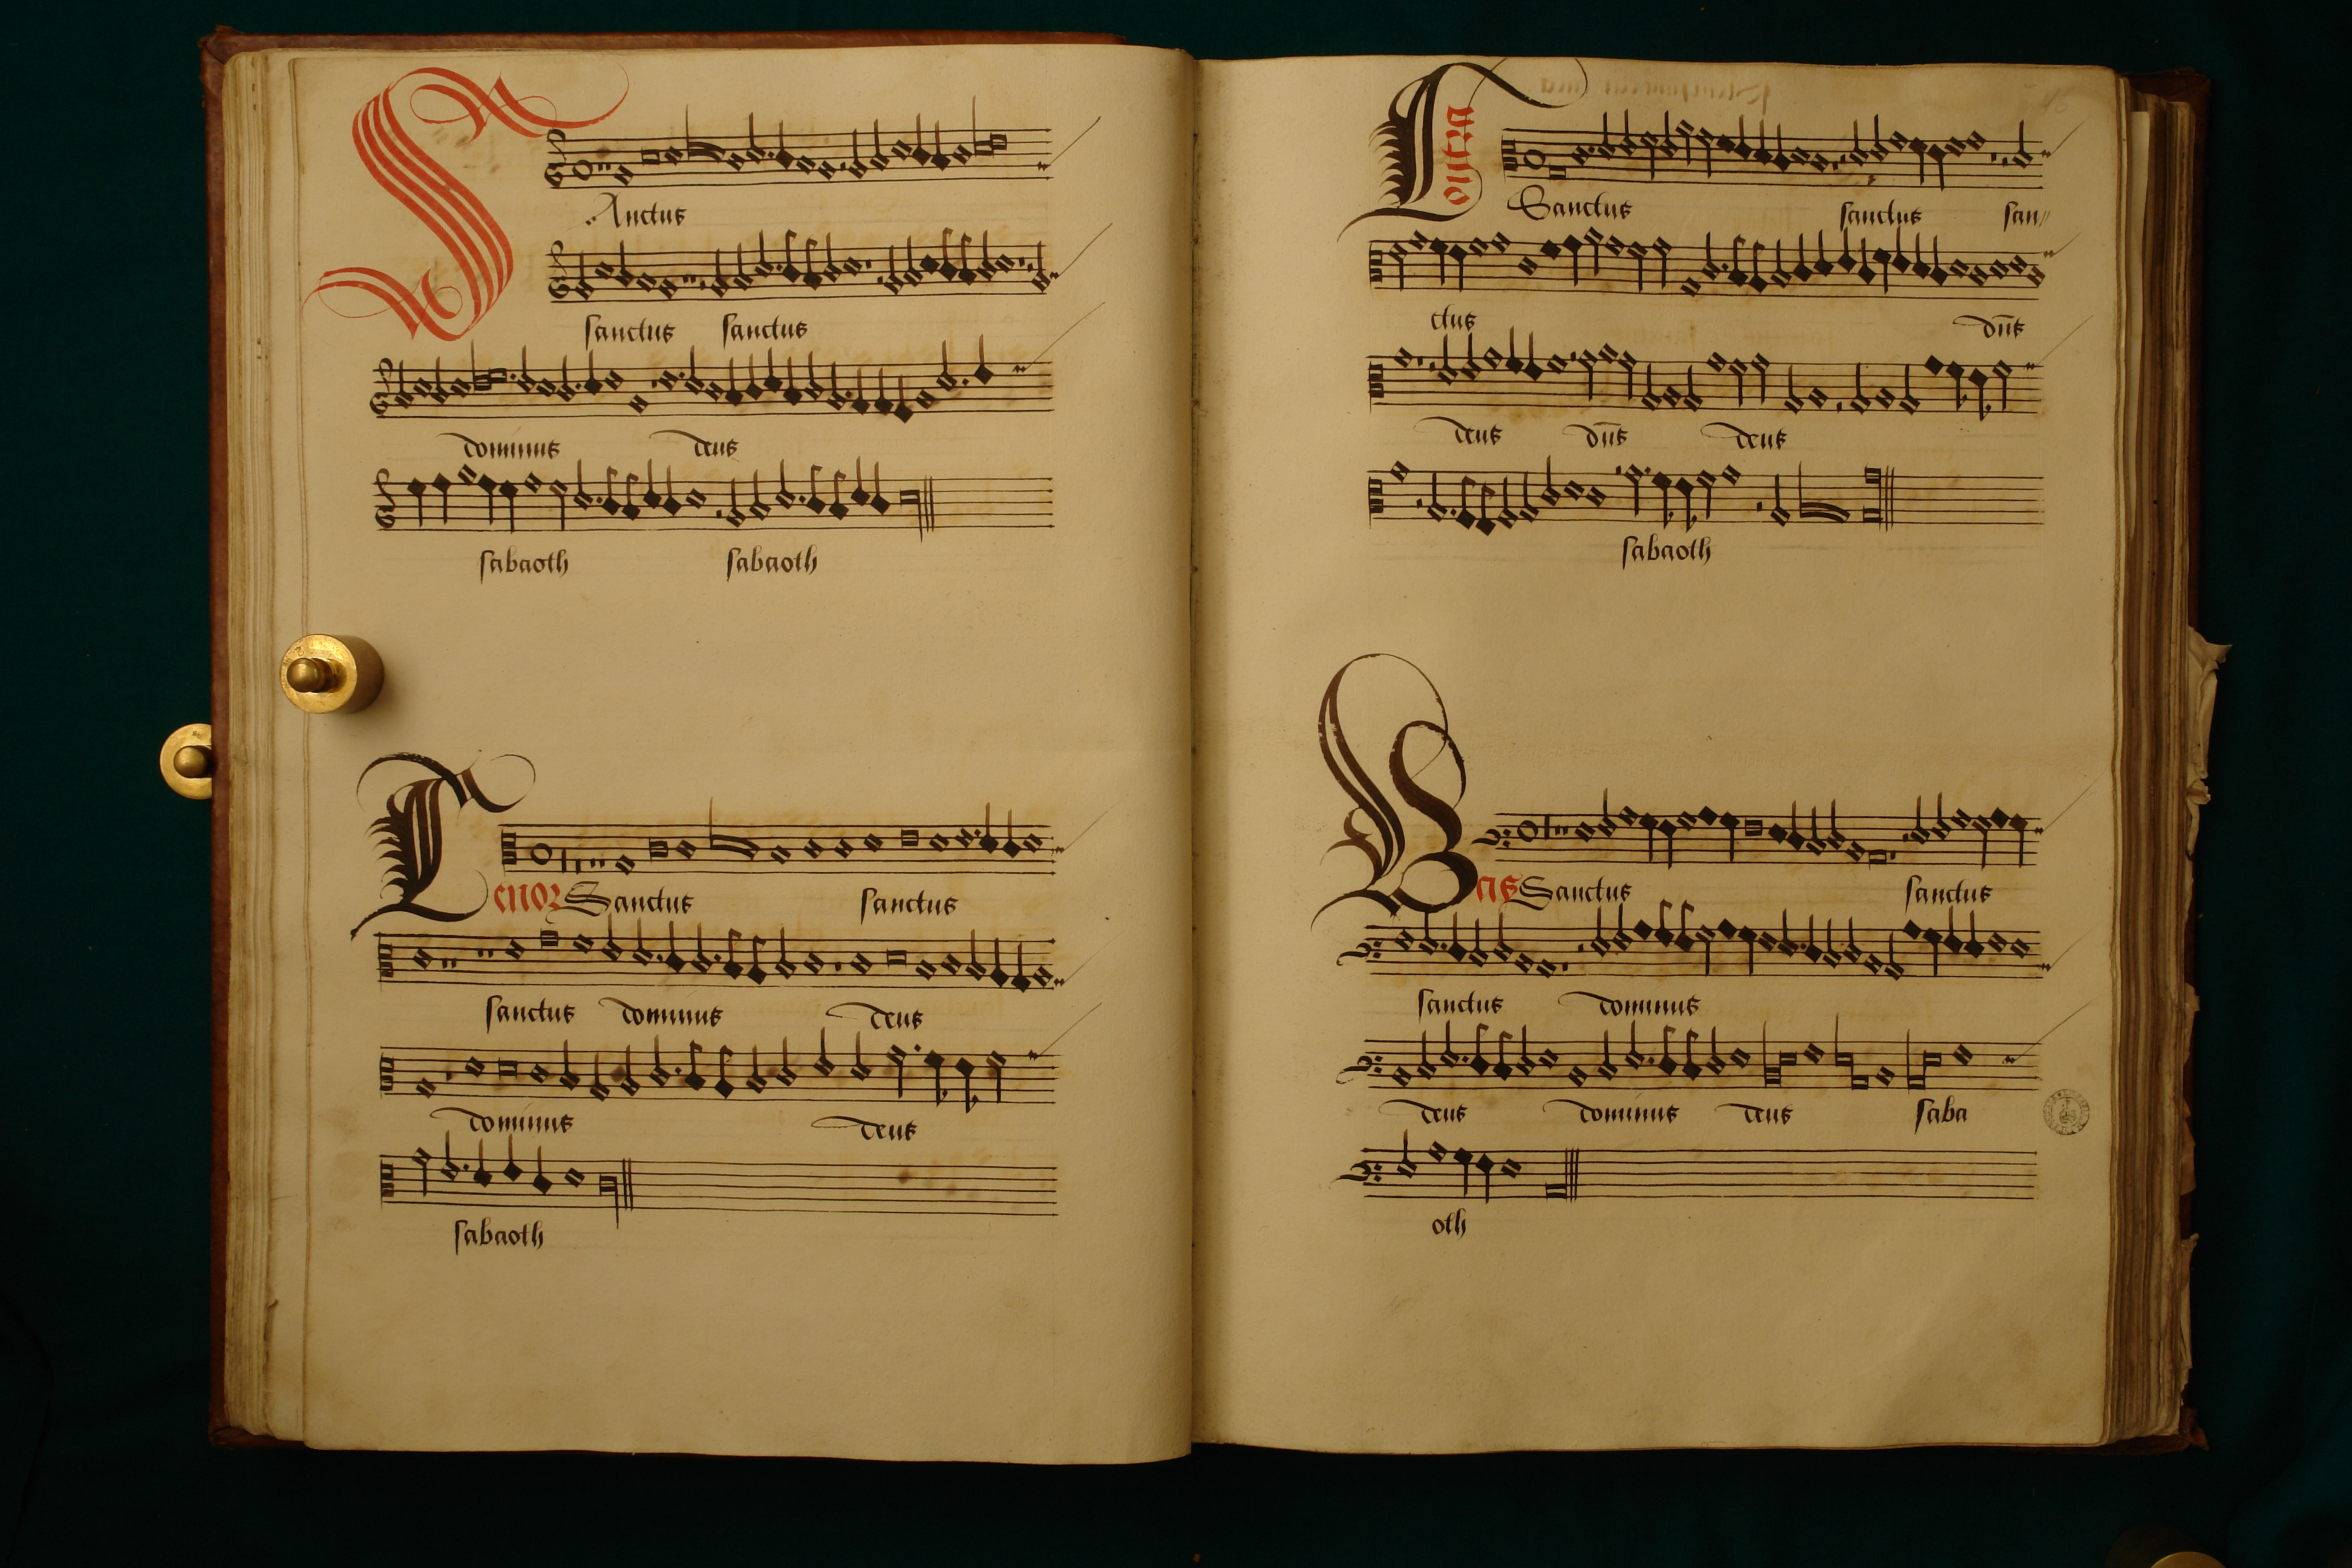 SAnctus
sanctus sanctus
dominus deus
sabaoth sabaoth
Tenor Sanctus sanctus
sanctus dominus deus
dominus deus
sabaoth
Sanctus sanctus san
ctus dns
deus dns deus
sabaoth
Bas Sanctus sanctus
sanctus dominus
deus dominus deus saba
oth